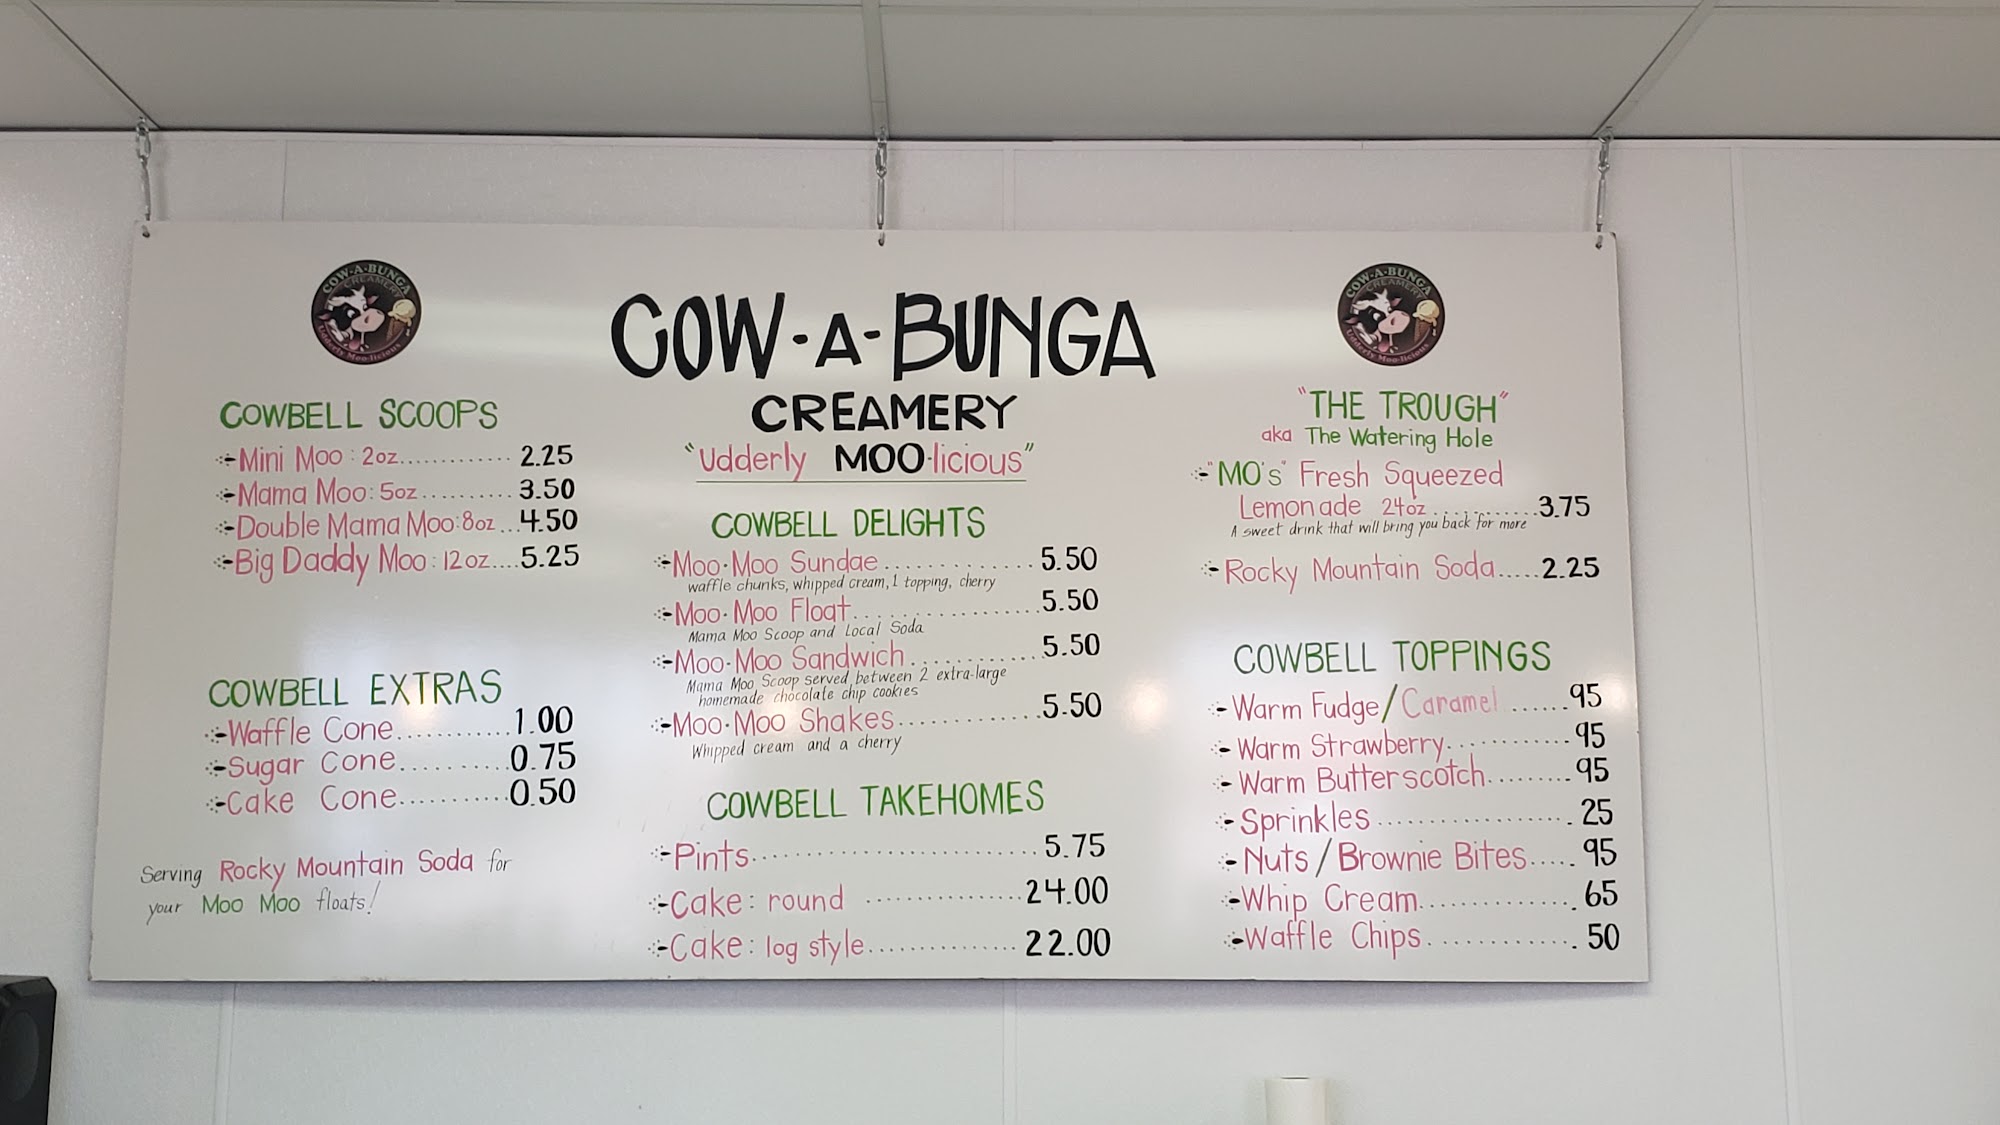 COW-A-BUNGA
CREAMERY
"Udderly MOO-licious"
COW-A-BUNGA
CREAMERY
Udderly Moo-licious
COWBELL SCOOPS
Mini Moo: 2oz............ 2.25
Mama Moo: 5oz.......... 3.50
Double Mama Moo: 8oz...4.50
Big Daddy Moo: 12oz....5.25
COWBELL EXTRAS
Waffle Cone............1.00
Sugar Cone..........0.75
Cake Cone...........0.50
Serving Rocky Mountain Soda for
your Moo Moo floats!
COWBELL DELIGHTS
Moo-Moo Sundae..............5.50
waffle chunks, whipped cream, 1 topping, cherry
Moo-Moo Float..................5.50
Mama Moo Scoop and Local Soda
Moo-Moo Sandwich.............5.50
Mama Moo Scoop served between 2 extra-large
homemade chocolate chip cookies
Moo-Moo Shakes..............5.50
Whipped cream and a cherry
COWBELL TAKEHOMES
Pints............................5.75
Cake: round ...............24.00
Cake: log style..............22.00
COW-A-BUNGA
CREAMERY
Udderly Moo-licious
"THE TROUGH"
aka The Watering Hole
"MO's" Fresh Squeezed
Lemonade 24oz...........3.75
A sweet drink that will bring you back for more
Rocky Mountain Soda.....2.25
COWBELL TOPPINGS
Warm Fudge/Caramel ......95
Warm Strawberry............95
Warm Butterscotch.........95
Sprinkles................... 25
Nuts/Brownie Bites..... 95
Whip Cream............... 65
Waffle Chips............. 50